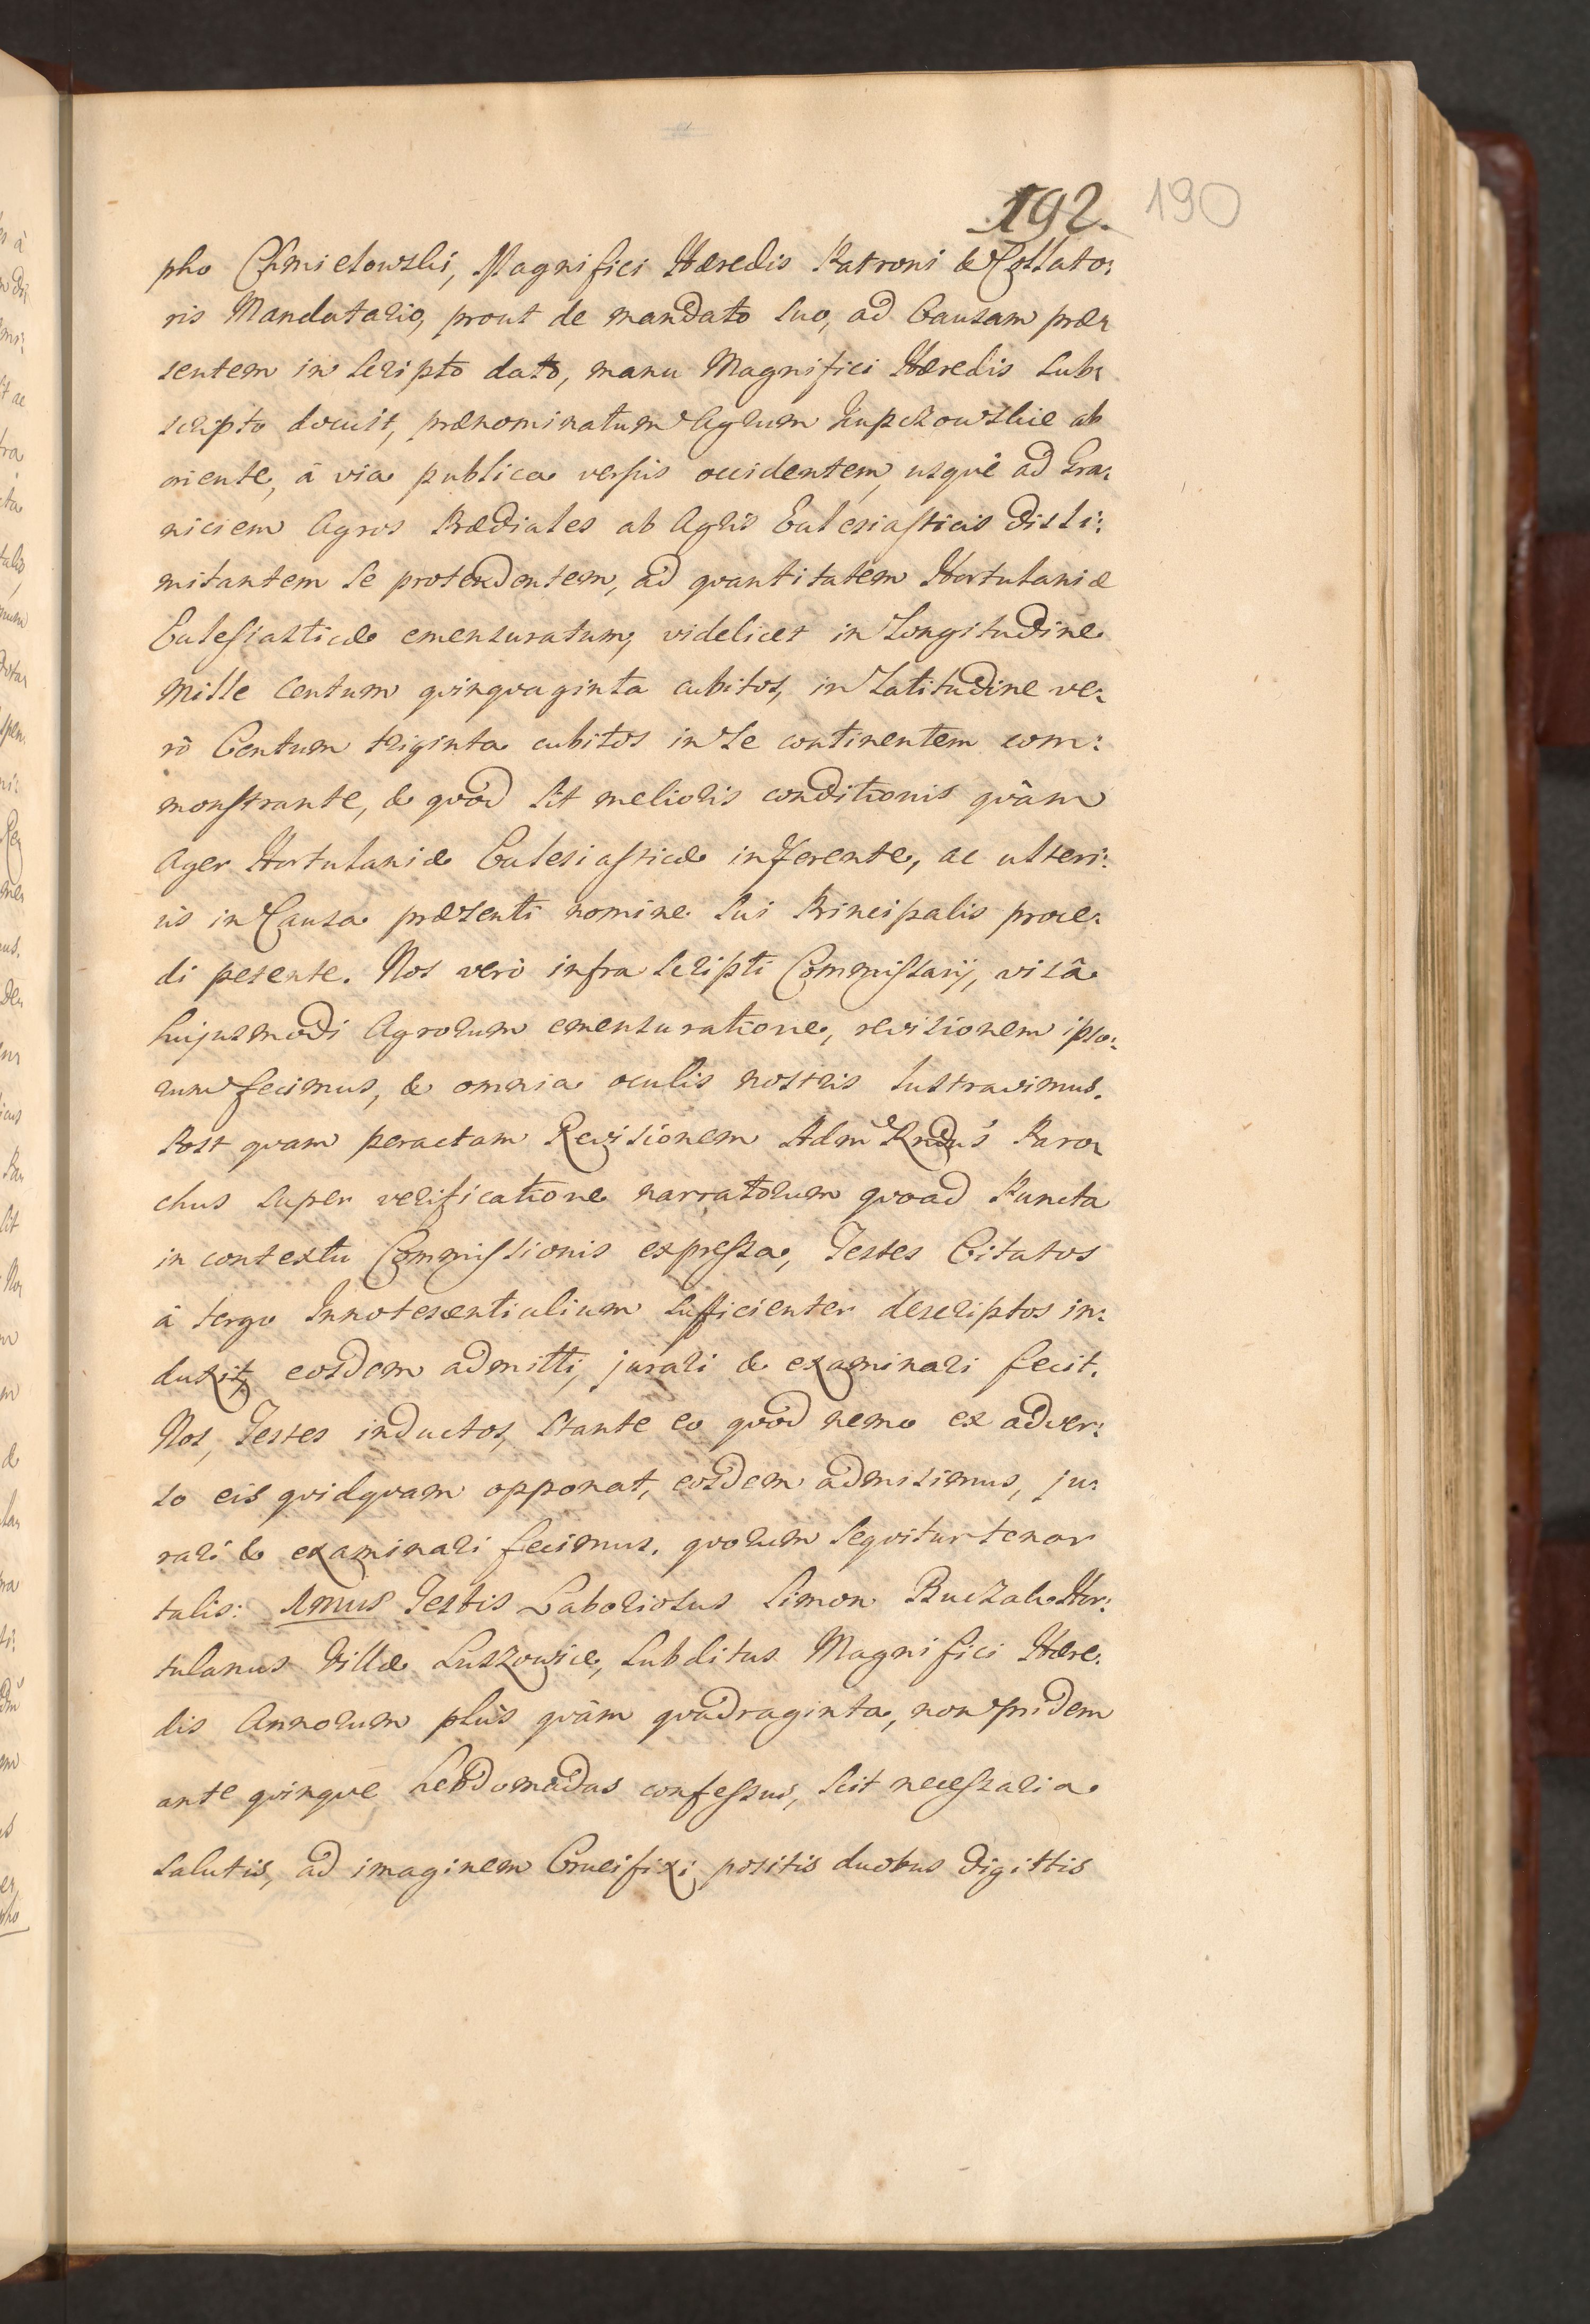 192. 190
pho Chmielowski, Magnifici Hæredis Patroni & Collato:
ris Mandatario, prout de mandato suo, ad Causam præ:
sentem in scripto dato, manu Magnifici Hæredis sub:
scripto docuit, prænominatum Agrum Kupczowskie ab
oriente, à via publica versus occidentem, usquè ad Gra:
niciem Agros Prædiales ab Agris Eclesiasticis disli:
mitantem se protendentem, ad quantitatem Hortulaniæ
Eclesiasticæ emensuratum, videlicet in Longitudine
Mille Centum quinquaginta cubitos, in Latitudine ve:
rò Centum triginta cubitos in se continentem com:
monstrante, & quòd sit melioris conditionis quàm
Ager Hortulaniæ Eclesiasticæ inferente, ac ulteri:
ùs in Causa præsenti nomine sui Principalis proce:
di petente. Nos verò infra scripti Commissarij, visâ
hujusmodi Agrorum emensuratione, revisionem ipso:
rum fecimus, & omnia oculis nostris lustravimus.
Post quam peractam Revisionem Adm Rndus Paro:
chus super verificatione narratorum quoad Puncta
in contextu Commissionis expressa, Testes Citatos
à tergo Innotescentialium sufficienter descriptos in:
duxit, eosdem admitti, jurari & examinari fecit.
Nos, Testes inductos, stante eo quòd nemo ex adver:
so eis quidquam opponat, eosdem admisimus, ju:
rari & examinari fecimus. quorum sequitur tenor
talis: 1mus Testis Laboriosus Simon Buczak Hor:
tulanus Villæ Luszowice, subditus Magnifici Hære:
dis Annorum plùs quàm quadraginta, non pridem
ante quinque hebdomadas confessus, scit necessaria
salutis, ad imaginem Crucifixi positis duobus digittis